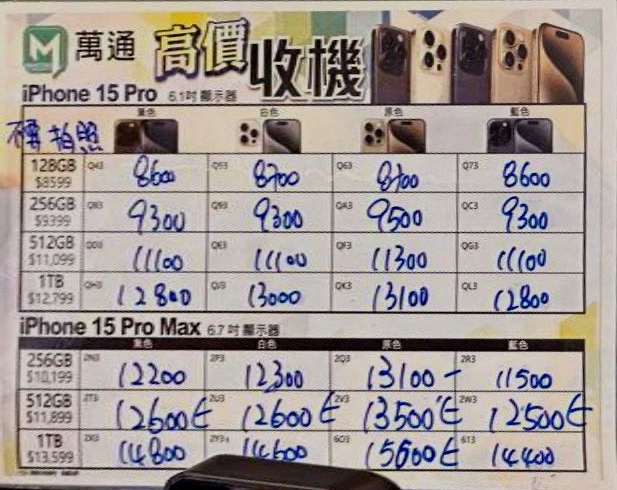 M 萬通 高價收機
iPhone 15 Pro 6.1吋 顯示器
黑色 白色 原色 藍色
不準拍照
128GB Q43 8600 Q53 8700 Q63 8700 Q73 8600
$8599
256GB Q83 9300 Q93 9300 QA3 9500 QC3 9300
$9399
512GB QD3 11100 QE3 11100 QF3 11300 QG3 11100
$11,099
1TB QH3 12800 QJ3 13000 QK3 13100 QL3 12800
$12,799
iPhone 15 Pro Max 6.7吋 顯示器
黑色 白色 原色 藍色
256GB 2N3 12200 2P3 12300 2Q3 13100- 2R3 11500
$10,199
512GB 2T3 12600 2U3 12600 2V3 13500 2W3 12500
$11,899
1TB 2X3 14800 2Y3 14600 603 15600 613 14400
$13,599